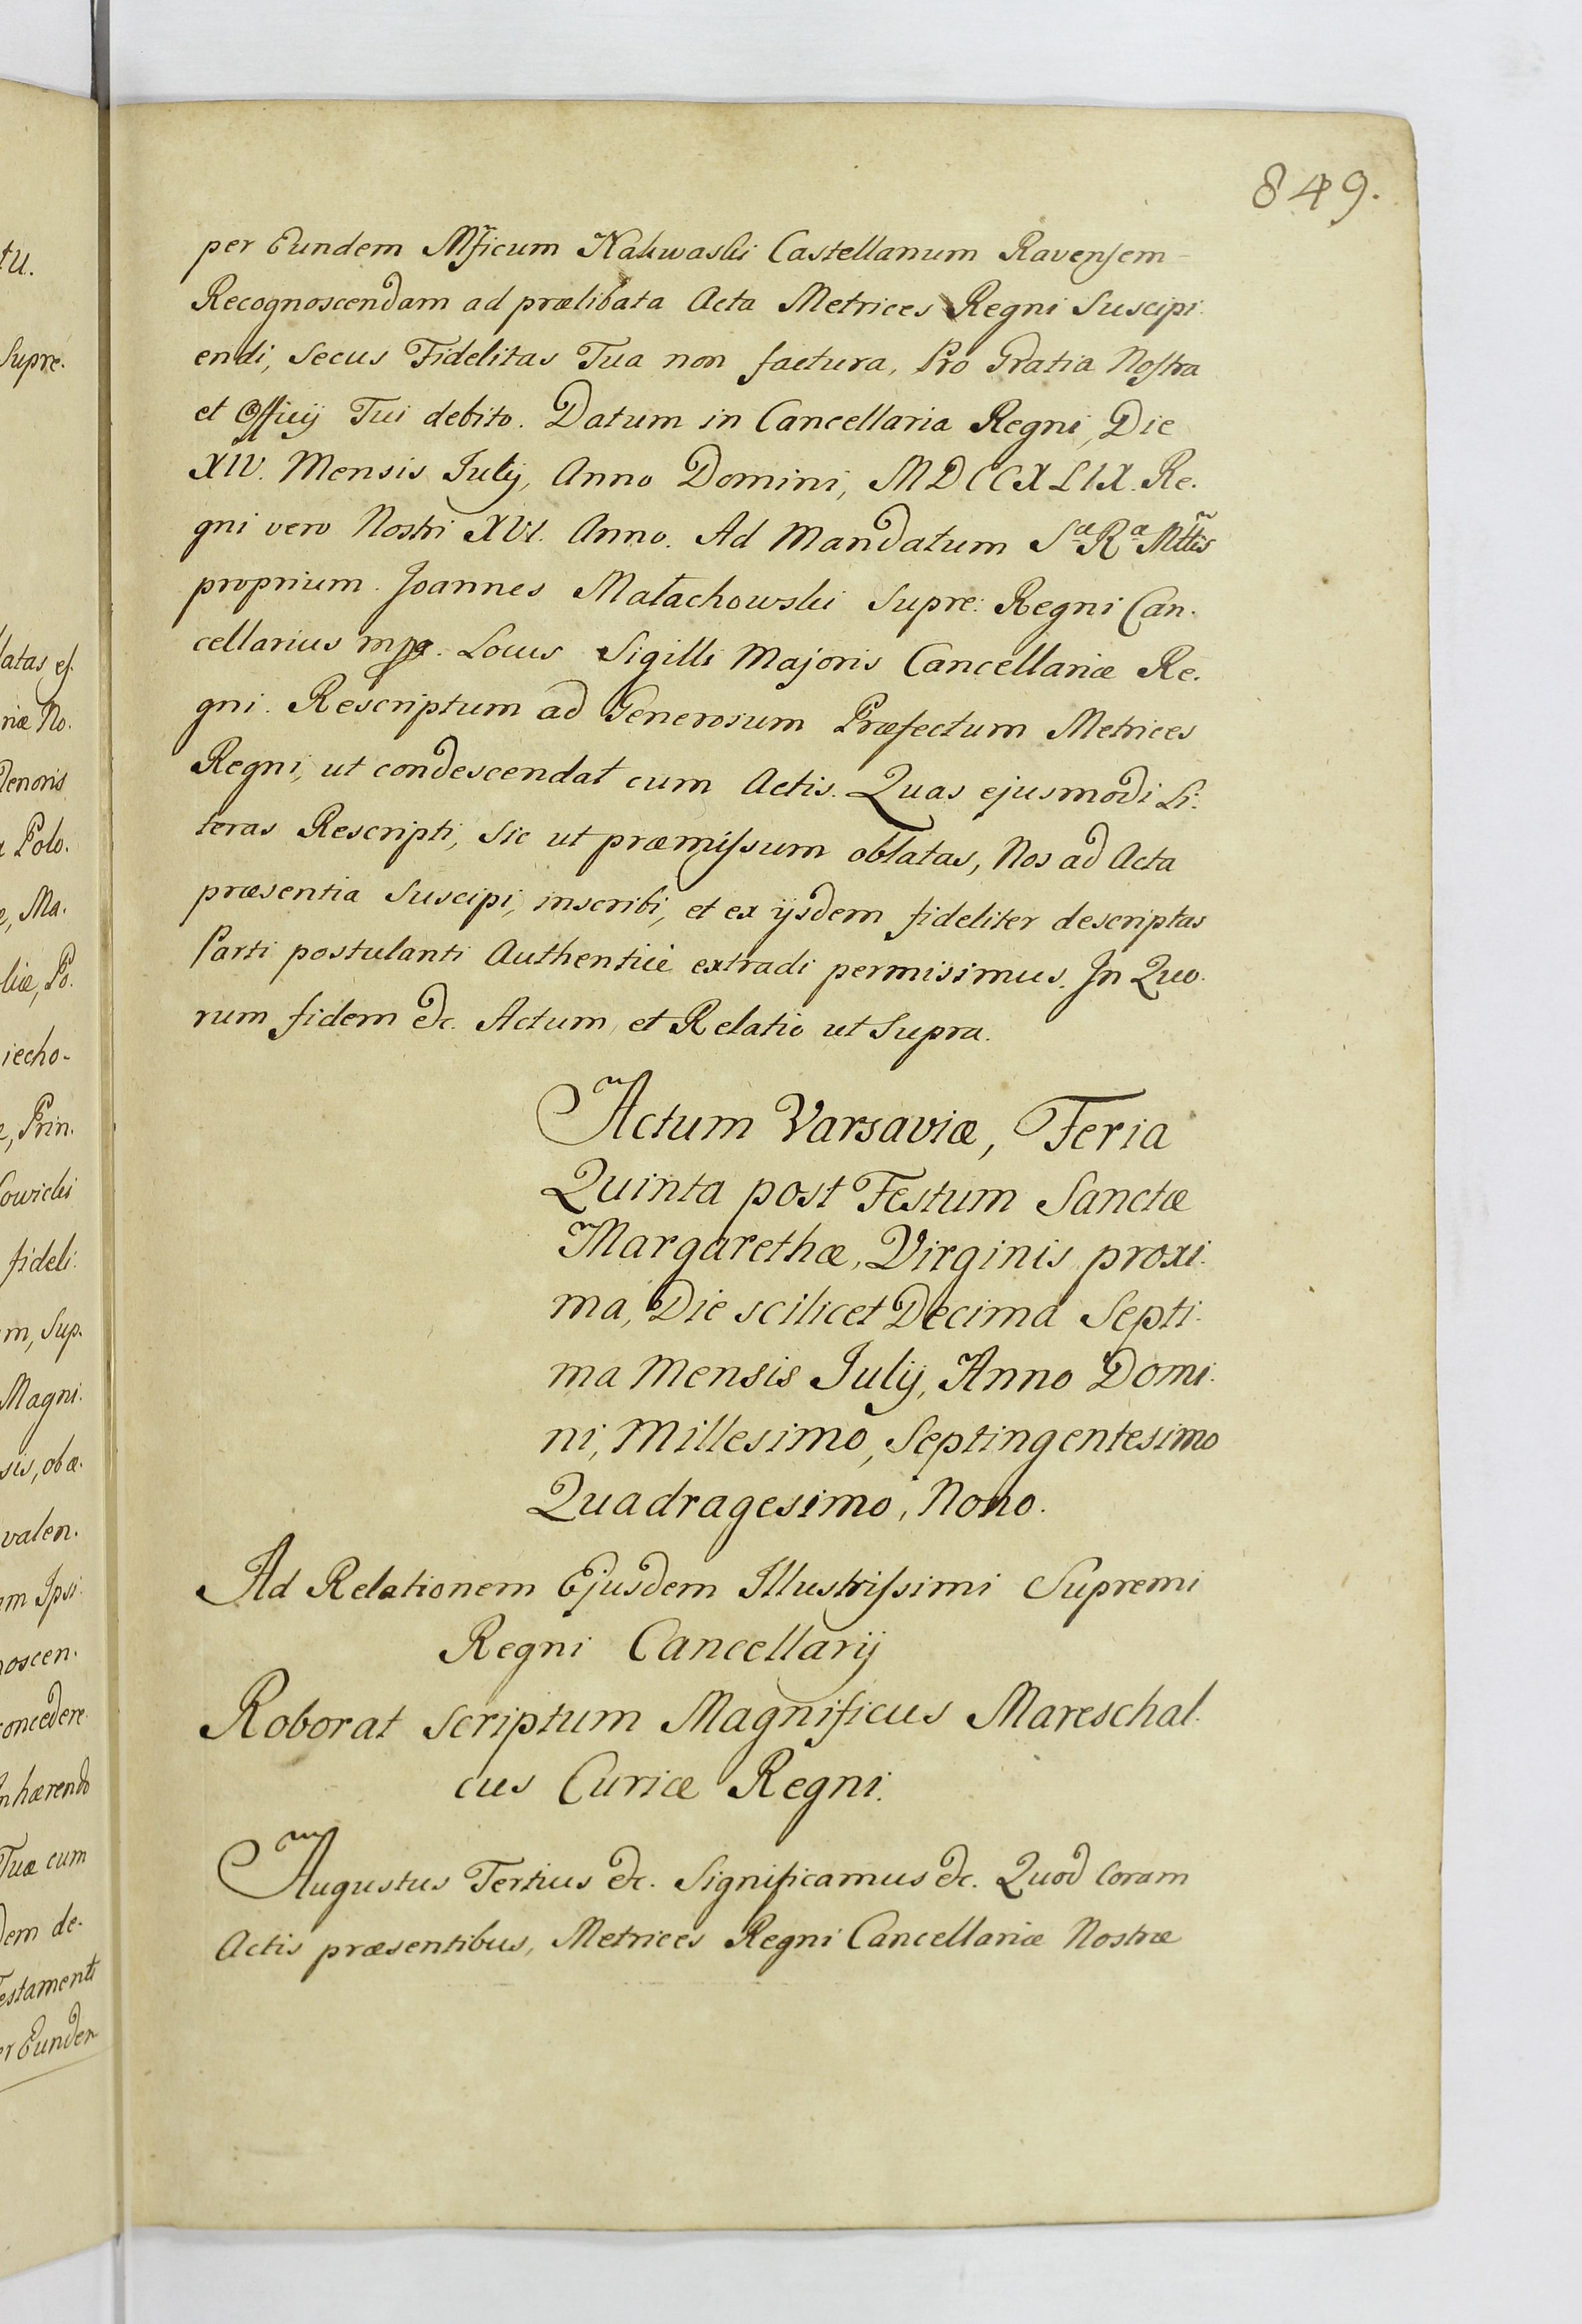 849.
per Eundem Mficum Nakwaski Castellanum Ravensem
Recognoscendam ad prælibata Acta Metrices Regni Suscipi
endi, Secus Fidelitas Tua non factura, Pro Gratia Nostra
et Officij Tui debito. Datum in Cancellaria Regni, Die
XIV. Mensis Julij, Anno Domini, MDCCXLIX. Re.
gni vero Nostri XVI. Anno. Ad Mandatum Sæ Ræ Mttis
proprium. Joannes Małachowski Supre: Regni Can.
cellarius mpp. Locus Sigilli Majoris Cancellariæ Re.
gni. Rescriptum ad Generosum Præfectum Metrices
Regni, ut condescendat cum Actis. Quas ejusmodi Li.
teras Rescripti, Sic ut præmissum oblatas, Nos ad Acta
præsentia Suscipi, inscribi, et ex ijsdem fideliter descriptas
Parti postulanti Authenticè extradi permisimus. In Quo.
rum fidem &c. Actum, et Relatio ut Supra.
Actum Varsaviæ, Feria
Quinta post Festum Sanctæ
Margarethæ, Virginis proxi.
ma, Die scilicet Decima Septi.
ma Mensis Julij, Anno Domi.
ni, Millesimo, Septingentesimo
Quadragesimo, Nono.
Ad Relationem Ejusdem Illustrissimi Supremi
Regni Cancellarij
Roborat Scriptum Magnificus Mareschal.
cus Curiæ Regni.
Augustus Tertius &c. Significamus &c. Quod Coram
Actis præsentibus, Metrices Regni Cancellariæ Nostræ
tu.
Supre.
latas, ej.
riæ No.
Tenoris
a Polo.
e, Ma.
liæ, Po.
iecho-
e, Prin.
fideli.
m, Sup.
Magni.
sis, obæ.
valen.
m Ipsi.
noscen.
concedere.
Inhærendo
Tuæ cum
dem de.
Testamenti
er Eundem